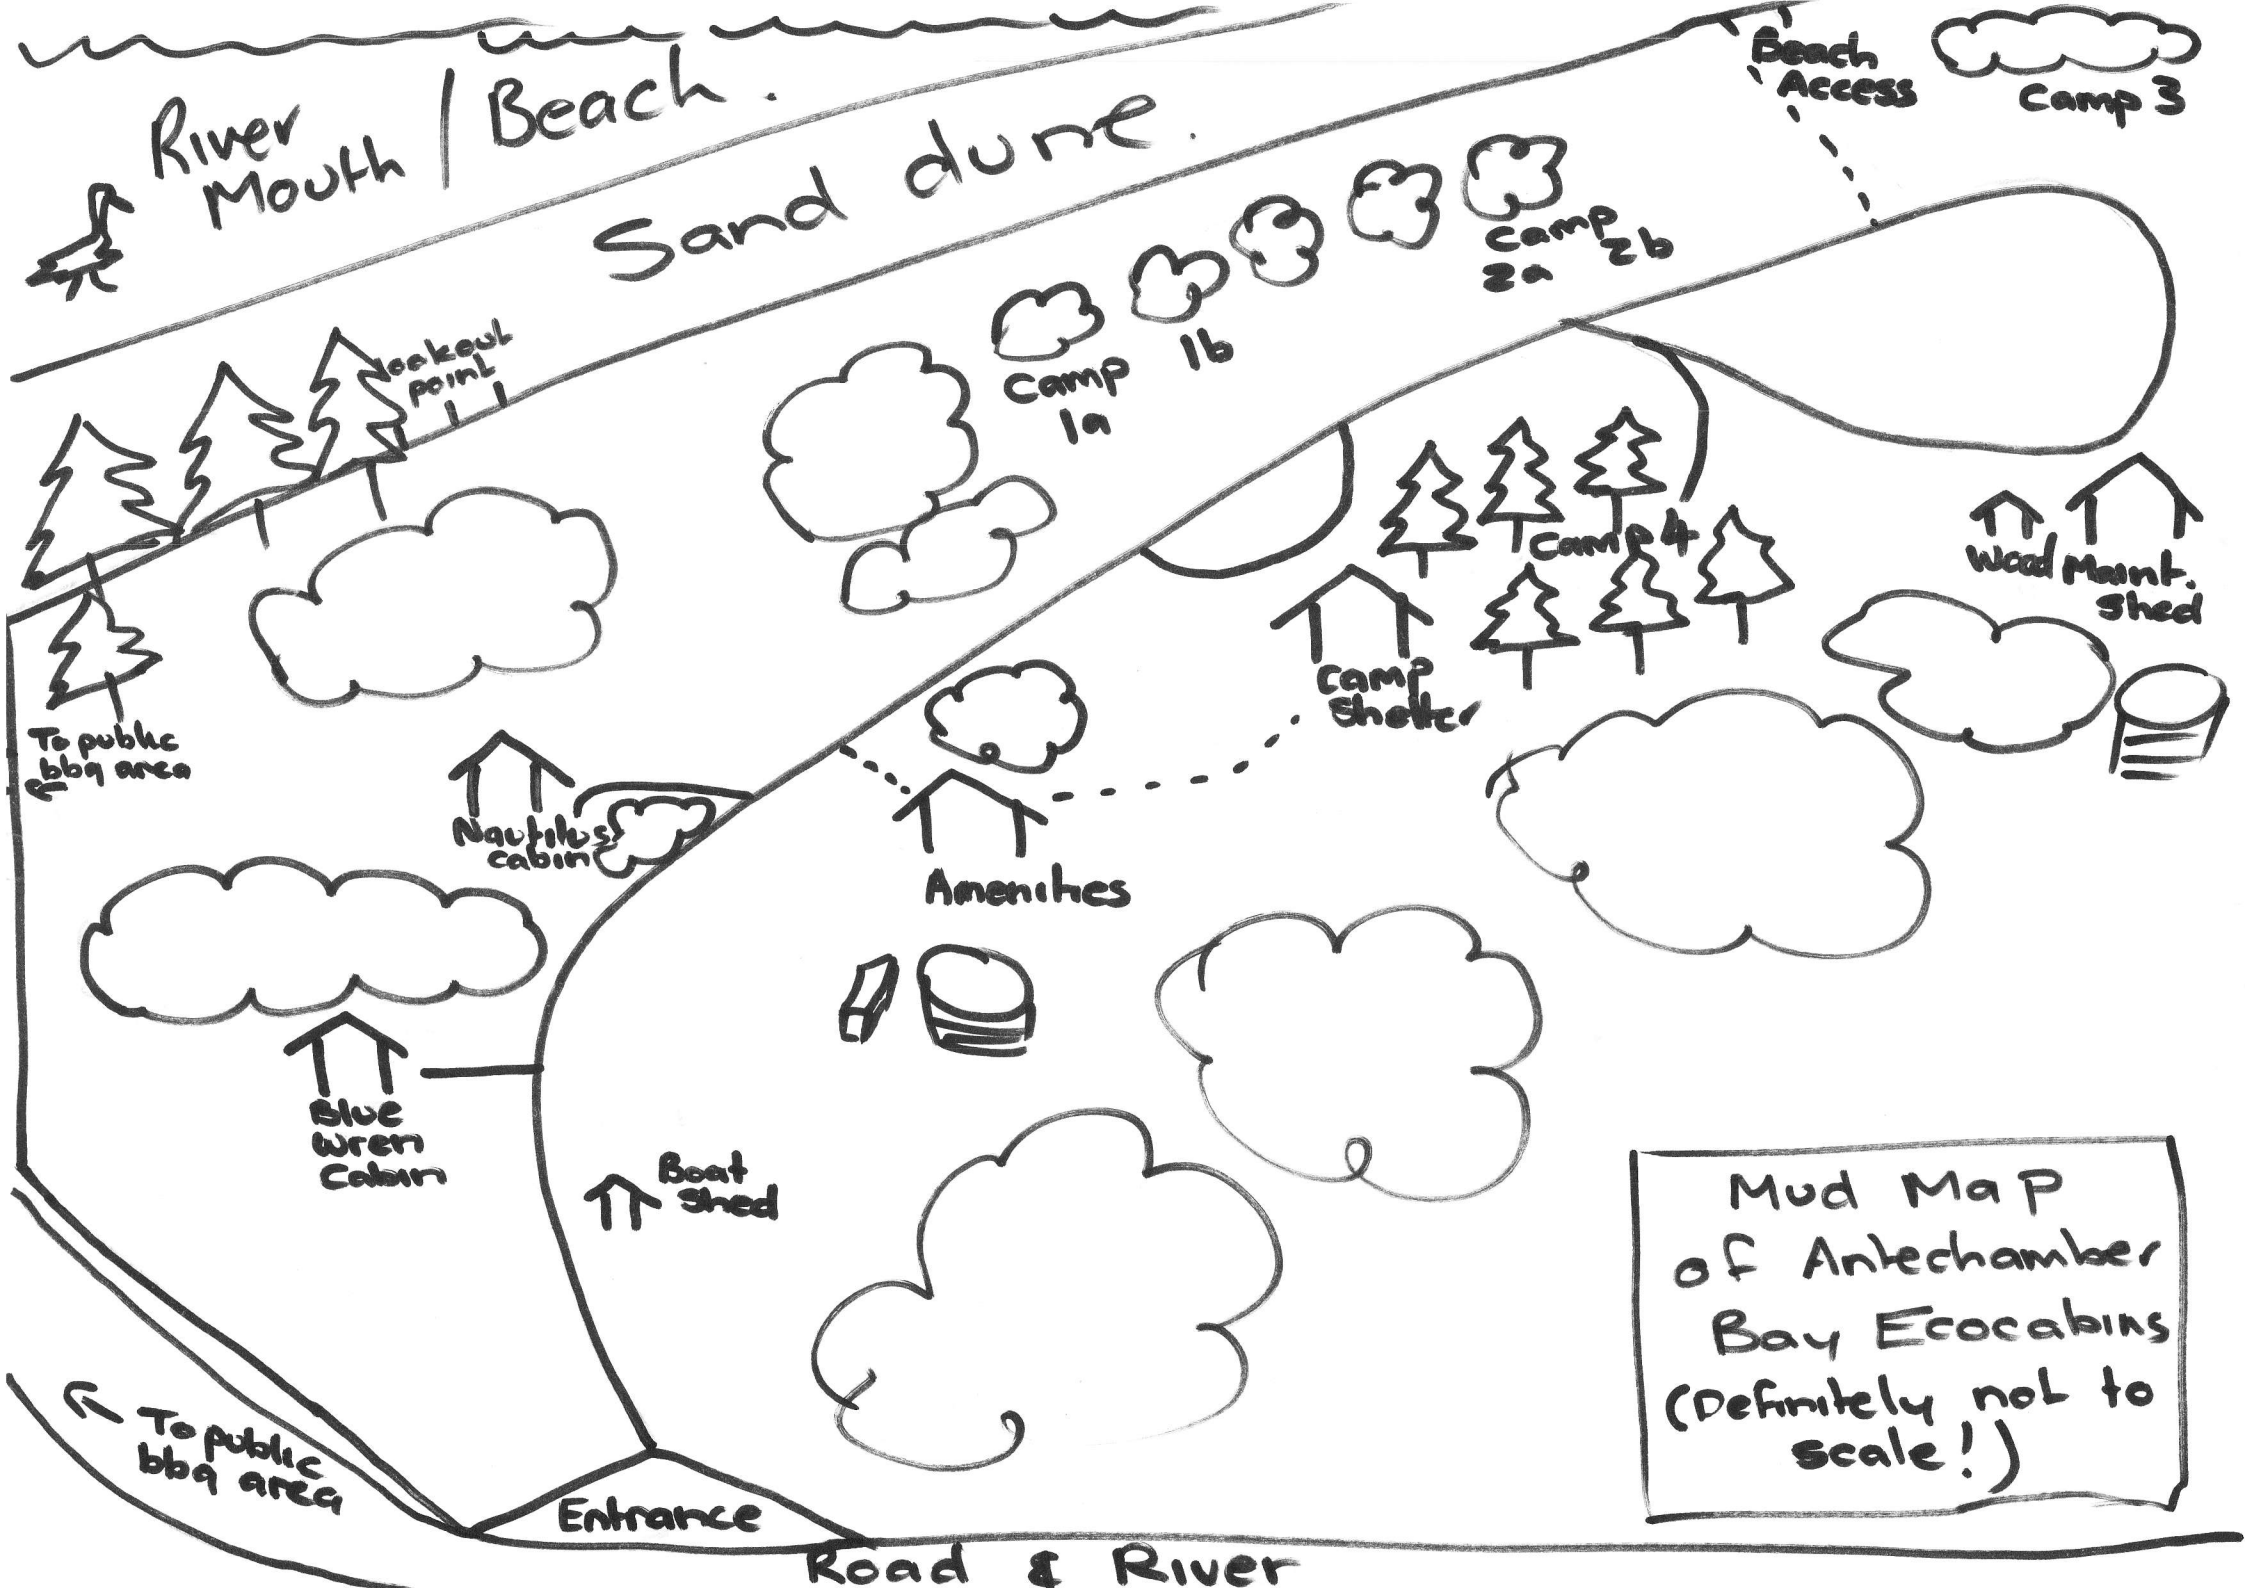 River
Mouth / Beach.
Sand dune.
Beach
Access
Camp 3
Lookout
point
Camp
1a
1b
Camp
2a
2b
Camp 4
Wood
Maint.
Shed
Camp
Shelter
To public
bbq area
Nautilus
cabin
Amenities
Blue
Wren
Cabin
Boat
Shed
To public
bbq area
Entrance
Road & River
Mud Map
of Antechamber
Bay Ecocabins
(Definitely not to
scale!)